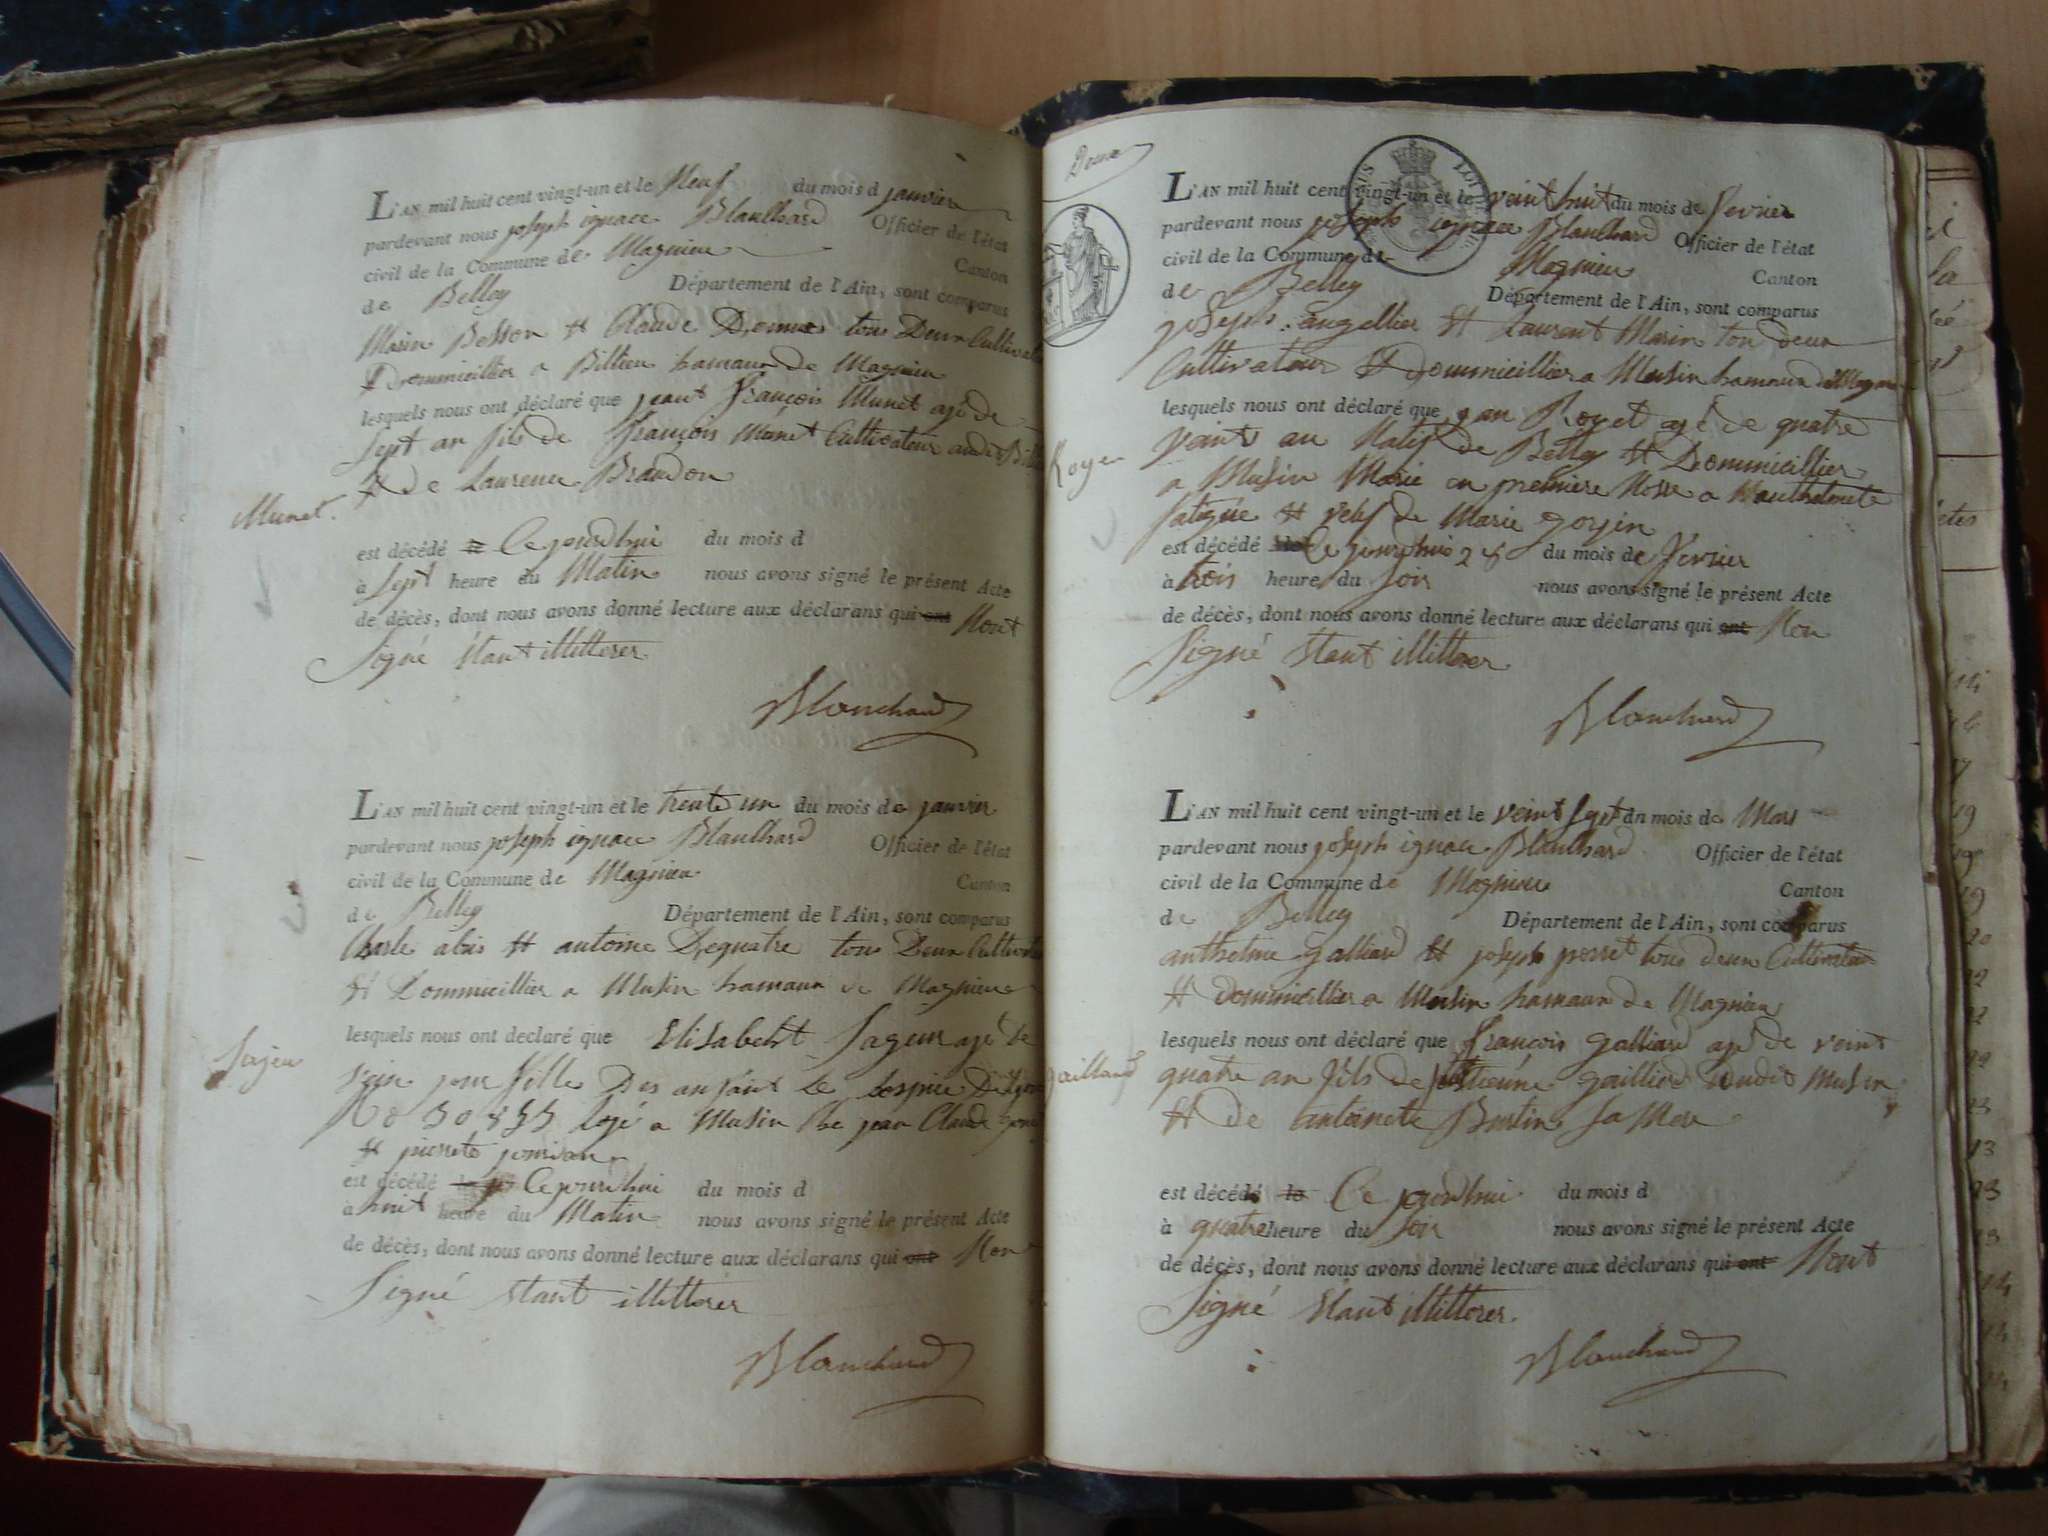 L'AN mil huit cent vingt-un et le Neuf du mois d janvier
pardevant nous joseph ignace Blanlhard Officier de l'état
civil de la Commune de Magnieu Canton
de Belley Département de l'Ain, sont comparus
Marin Besson et Claude tous Deux
Dommicillier a Billieu hamaux de Magnieu
lesquels nous ont déclaré que jeant françois Munet ajé de
sept an fils de françois Munet Cultivateur
et de Laurence Brandon
Munet.
est décédé Ce jourdhui du mois d
à sept heure du Matin nous avons signé le présent Acte
de décès, dont nous avons donné lecture aux déclarans qui ont Nont
Signé étant illitterer
Blanchard
L'AN mil huit cent vingt-un et le trente un du mois de janvier
pardevant nous joseph ignace Blanlhard Officier de l'état
civil de la Commune de Magnieu Canton
de Belley Département de l'Ain, sont comparus
Charle et antoine Dequatre tous Deux
et Dommicillier a Musin hamaux de Magnieu
lesquels nous ont déclaré que Elisabeht Sageux ajé de
jour fille Des anfant de hospice
logé a Musin jean Claude
et
Sajeu
est décédé Ce jourdhui du mois d
à huit heure du Matin nous avons signé le présent Acte
de décès, dont nous avons donné lecture aux déclarans qui ont Non
Signé étant illitterer
Blanchard
Douze
L'AN mil huit cent vingt-un et le veint huit du mois de fevrier
pardevant nous joseph ignace Blanchard Officier de l'état
civil de la Commune de Magnieu Canton
de Belley Département de l'Ain, sont comparus
joseph angellier et Laurent Marin tou deux
Cultivateur et Dommicillier a Musin hamaux de Magnieu
lesquels nous ont déclaré que jan Royet ajé de quatre
veint an Natif de Belley et Dommicillier
a Musin Marié en premiere Nosse a
fatigue et vefs de Marie gorjin
Royer
est décédé Ce jourdhui 28 du mois de fevrier
à trois heure du soir nous avons signé le présent Acte
de décès, dont nous avons donné lecture aux déclarans qui ont Non
Signé étant illitterer
Blanchard
L'AN mil huit cent vingt-un et le veint sept du mois de Mars
pardevant nous joseph ignace Blanlhard Officier de l'état
civil de la Commune de Magnieu Canton
de Belley Département de l'Ain, sont comparus
anthelme galliard et joseph perret tous deux Cultivateur
et dommicillier a Musin hamaux de Magnieu
lesquels nous ont déclaré que françois galliard ajé de veint
quatre an fils de gailliard audit Musin
et de antoinete Burtin sa Mere
gaillard
est décédé le Ce jourdhui du mois d
à quatre heure du soir nous avons signé le présent Acte
de décès, dont nous avons donné lecture aux déclarans qui ont Nont
Signé étant illitterer.
Blanchard